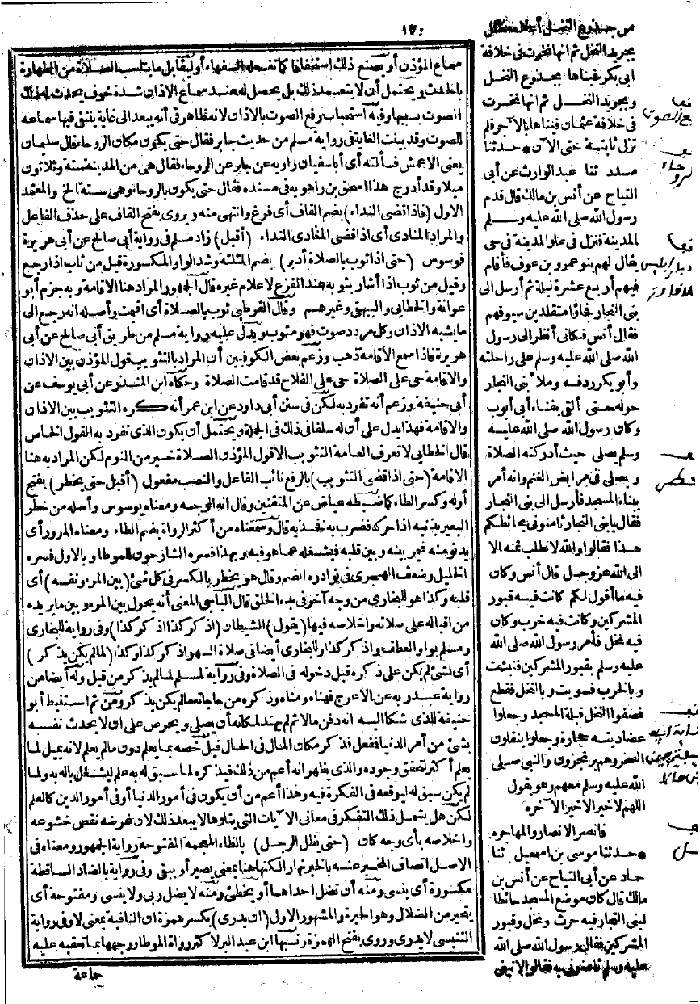 ١٧٠
سماع المؤذن أو يصنع ذلك استخفافا كما يفعله السفهاء أو ليقابل ما يناسب الصلاة من الطهارة
بالحدث ويحتمل أن لا يتعمد ذلك بل يحصل له عند سماع الأذان شدة خوف يحدث له ذلك
الصوت بسببها وفيه استحباب رفع الصوت بالاذان لانه ظاهر في أنه يبعد الى غاية ينتفي فيها سماعه
للصوت وقد بينت الغاية في رواية مسلم من حديث جابر فقال حتى يكون مكان الروحاء قال سليمان
يعني الاعمش فسألته أي أبا سفيان راويه عن جابر عن الروحاء فقال هي من المدينة ستة وثلاثون
ميلا وقد أدرج هذا اسحق بن راهويه في مسنده فقال حتى يكون بالروحاء وهي ستة الخ والمعتمد
الاول (فاذا قضى النداء) بضم القاف أي فرغ وانتهى منه و يروى بفتح القاف على حذف الفاعل
والمراد المنادي أي اذا قضى المنادي النداء (أقبل) زاد مسلم في رواية أبي صالح عن أبي هريرة
فوسوس (حتى اذا ثوب بالصلاة أدبر) بضم المثلثة وشد الواو المكسورة قيل من ثاب اذا رجع
وقيل من ثوب اذا أشار بثوبه عند الفزع لاعلام غيره قال الجمهور المراد هنا الاقامة و به جزم أبو
عوانة والخطابي والبيهقي وغيرهم وقال القرطبي ثوب بالصلاة أي أقيمت وأصله انه رجع الى
ما يشبه الاذان وكل مردد صوت فهو مثوب ويدل عليه رواية مسلم من طريق أبي صالح عن أبي
هريرة فاذا سمع الاقامة ذهب وزعم بعض الكوفيين أن المراد بالتثويب قول المؤذن بين الاذان
والاقامة حي على الصلاة حي على الفلاح قد قامت الصلاة وحكاه ابن المنذر عن أبي يوسف عن
أبي حنيفة وزعم أنه تفرد به لكن في سنن أبي داود عن ابن عمر أنه كره التثويب بين الاذان
والاقامة فهذا يدل على أن له سلفا في ذلك في الجملة ويحتمل أن يكون الذي تفرد به القول الخاص
قال الخطابي لا تعرف العامة التثويب الا قول المؤذن الصلاة خير من النوم لكن المراد به هنا
الاقامة (حتى اذا قضى التثويب) بالرفع نائب الفاعل والنصب مفعول (أقبل حتى يخطر) بفتح
أوله وكسر الطاء كما ضبطه عياض عن المتقنين وقال انه الوجه ومعناه يوسوس وأصله من خطر
البعير بذنبه اذا حركه فضرب به فخذيه قال وسمعناه من أكثر الرواة بضم الطاء ومعناه المرور أي
يدنو منه فيمر بينه و بين قلبه فيشغله عما هو فيه و بهذا فسره الشارحون للموطا و بالاول فسره
الخليل وضعف الهجري في نوادره الضم وقال هو يخطر بالكسر في كل شئ (بين المرء ونفسه) أي
قلبه وكذا هو للبخاري من وجه آخر في بدء الخلق قال الباجي المعنى أنه يحول بين المرء و بين ما يريده
من اقباله على صلاته واخلاصه فيها (يقول) الشيطان (اذكر كذا اذكر كذا) وفي رواية للبخاري
ومسلم بواو العطف واذكر كذا وللبخاري أيضا في صلاة السهو اذكر كذا وكذا (لما لم يكن يذكر)
أي لشئ لم يكن على ذكره قبل دخوله في الصلاة وفي رواية لمسلم لما لم يذكر من قبل وله أيضا من
رواية عبد ربه عن الاعرج فهناه ومناه وذكره من حاجاته ما لم يكن يذكر ومن ثم استنبط أبو
حنيفة للذي شكا اليه انه دفن مالا ثم لم يهتد لمكانه أن يصلي و يحرص على أن لا يحدث نفسه
بشئ من أمر الدنيا ففعل فذكر مكان المال في الحال قيل خصه بما يعلم دون ما لم يعلم لانه يميل لما
يعلم أكثر لتحقق وجوده والذي يظهر انه أعم من ذلك فيذكره لما سبق له به علم ليشتغل باله به ولما
لم يكن سبق له ليوقعه في الفكرة فيه وهذا أعم من أن يكون في أمور الدنيا أو في أمور الدين كالعلم
لكن هل يشمل ذلك التفكر في معاني الآيات التي يتلوها لا يبعد ذلك لان غرضه نقص خشوعه
واخلاصه بأي وجه كان (حتى يظل الرجل) بالظاء المعجمة المفتوحة رواية الجمهور ومعناه في
الاصل اتصاف المخبر عنه بالخبر نهارا لكنها هنا بمعنى يصير أو يبقى وفي رواية بالضاد الساقطة
مكسورة أي ينسى ومنه أن تضل احداهما أو يخطئ ومنه لا يضل ربي ولا ينسى ومفتوحة أي
يتحير من الضلال وهو الحيرة والمشهور الاول (ان يدري) بكسر همزة ان النافية بمعنى لا وفي رواية
التنيسي لا يدري وروي بفتح الهمزة ونسبها ابن عبد البر لاكثر رواة الموطا ووجهها بما تعقبه عليه
جماعة
من جذوع النخل
بجريد النخل ثم انها نخرت في خلافة
أبي بكر فبناها بجذوع النخل
و بجريد النخل ثم انها نخرت
في خلافة عثمان فبناها بالآجر فلم
تزل ثابتة حتى الآن * حدثنا
مسدد ثنا عبد الوارث عن أبي
التياح عن أنس بن مالك قال قدم
رسول الله صلى الله عليه وسلم
المدينة فنزل في علو المدينة في حي
يقال لهم بنو عمرو بن عوف فأقام
فيهم أربع عشرة ليلة ثم أرسل الى
بني النجار فجاؤا متقلدين سيوفهم
فقال أنس فكأني أنظر الى رسول
الله صلى الله عليه وسلم على راحلته
وأبو بكر ردفه وملأ بني النجار
حوله حتى ألقى بفناء أبي أيوب
وكان رسول الله صلى الله عليه
وسلم يصلي حيث أدركته الصلاة
و يصلي في مرابض الغنم وانه أمر
ببناء المسجد فأرسل الى بني النجار
فقال يا بني النجار ثامنوني بحائطكم
هذا فقالوا والله لا نطلب ثمنه الا
الى الله عز وجل قال أنس وكان
فيه ما أقول لكم كانت فيه قبور
المشركين وكانت فيه خرب وكان
فيه نخل فأمر رسول الله صلى الله
عليه وسلم بقبور المشركين فنبشت
وبالخرب فسويت و بالنخل فقطع
فصفوا النخل قبلة المسجد وجعلوا
عضادتيه حجارة وجعلوا ينقلون
الصخر وهم يرتجزون والنبي صلى
الله عليه وسلم معهم وهو يقول
اللهم لا خير الا خير الآخره
فانصر الانصار والمهاجره
* حدثنا موسى بن اسمعيل ثنا
حماد عن أبي التياح عن أنس بن
مالك قال كان موضع المسجد حائطا
لبني النجار فيه حرث ونخل وقبور
المشركين فقال رسول الله صلى الله
عليه وسلم ثامنوني به فقالوا لا نبغي